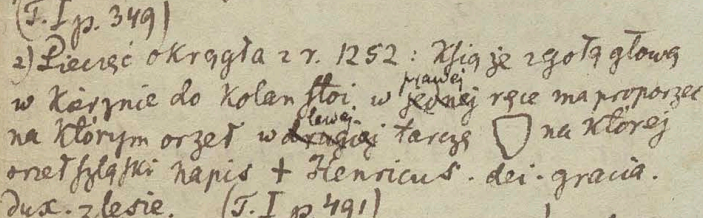 (T. I p. 349)
2) Pieczęć okrągła z r. 1252 : Książe z gołą głową
prawej
w Kerynie do Kolan stoi. w jednej ręce ma proporzec
lewej
na którym orzeł w drugiej tarczę na której
orzeł szląski napis + Henricus . dei . gracia .
dux . zlesie . (T. I p 491)